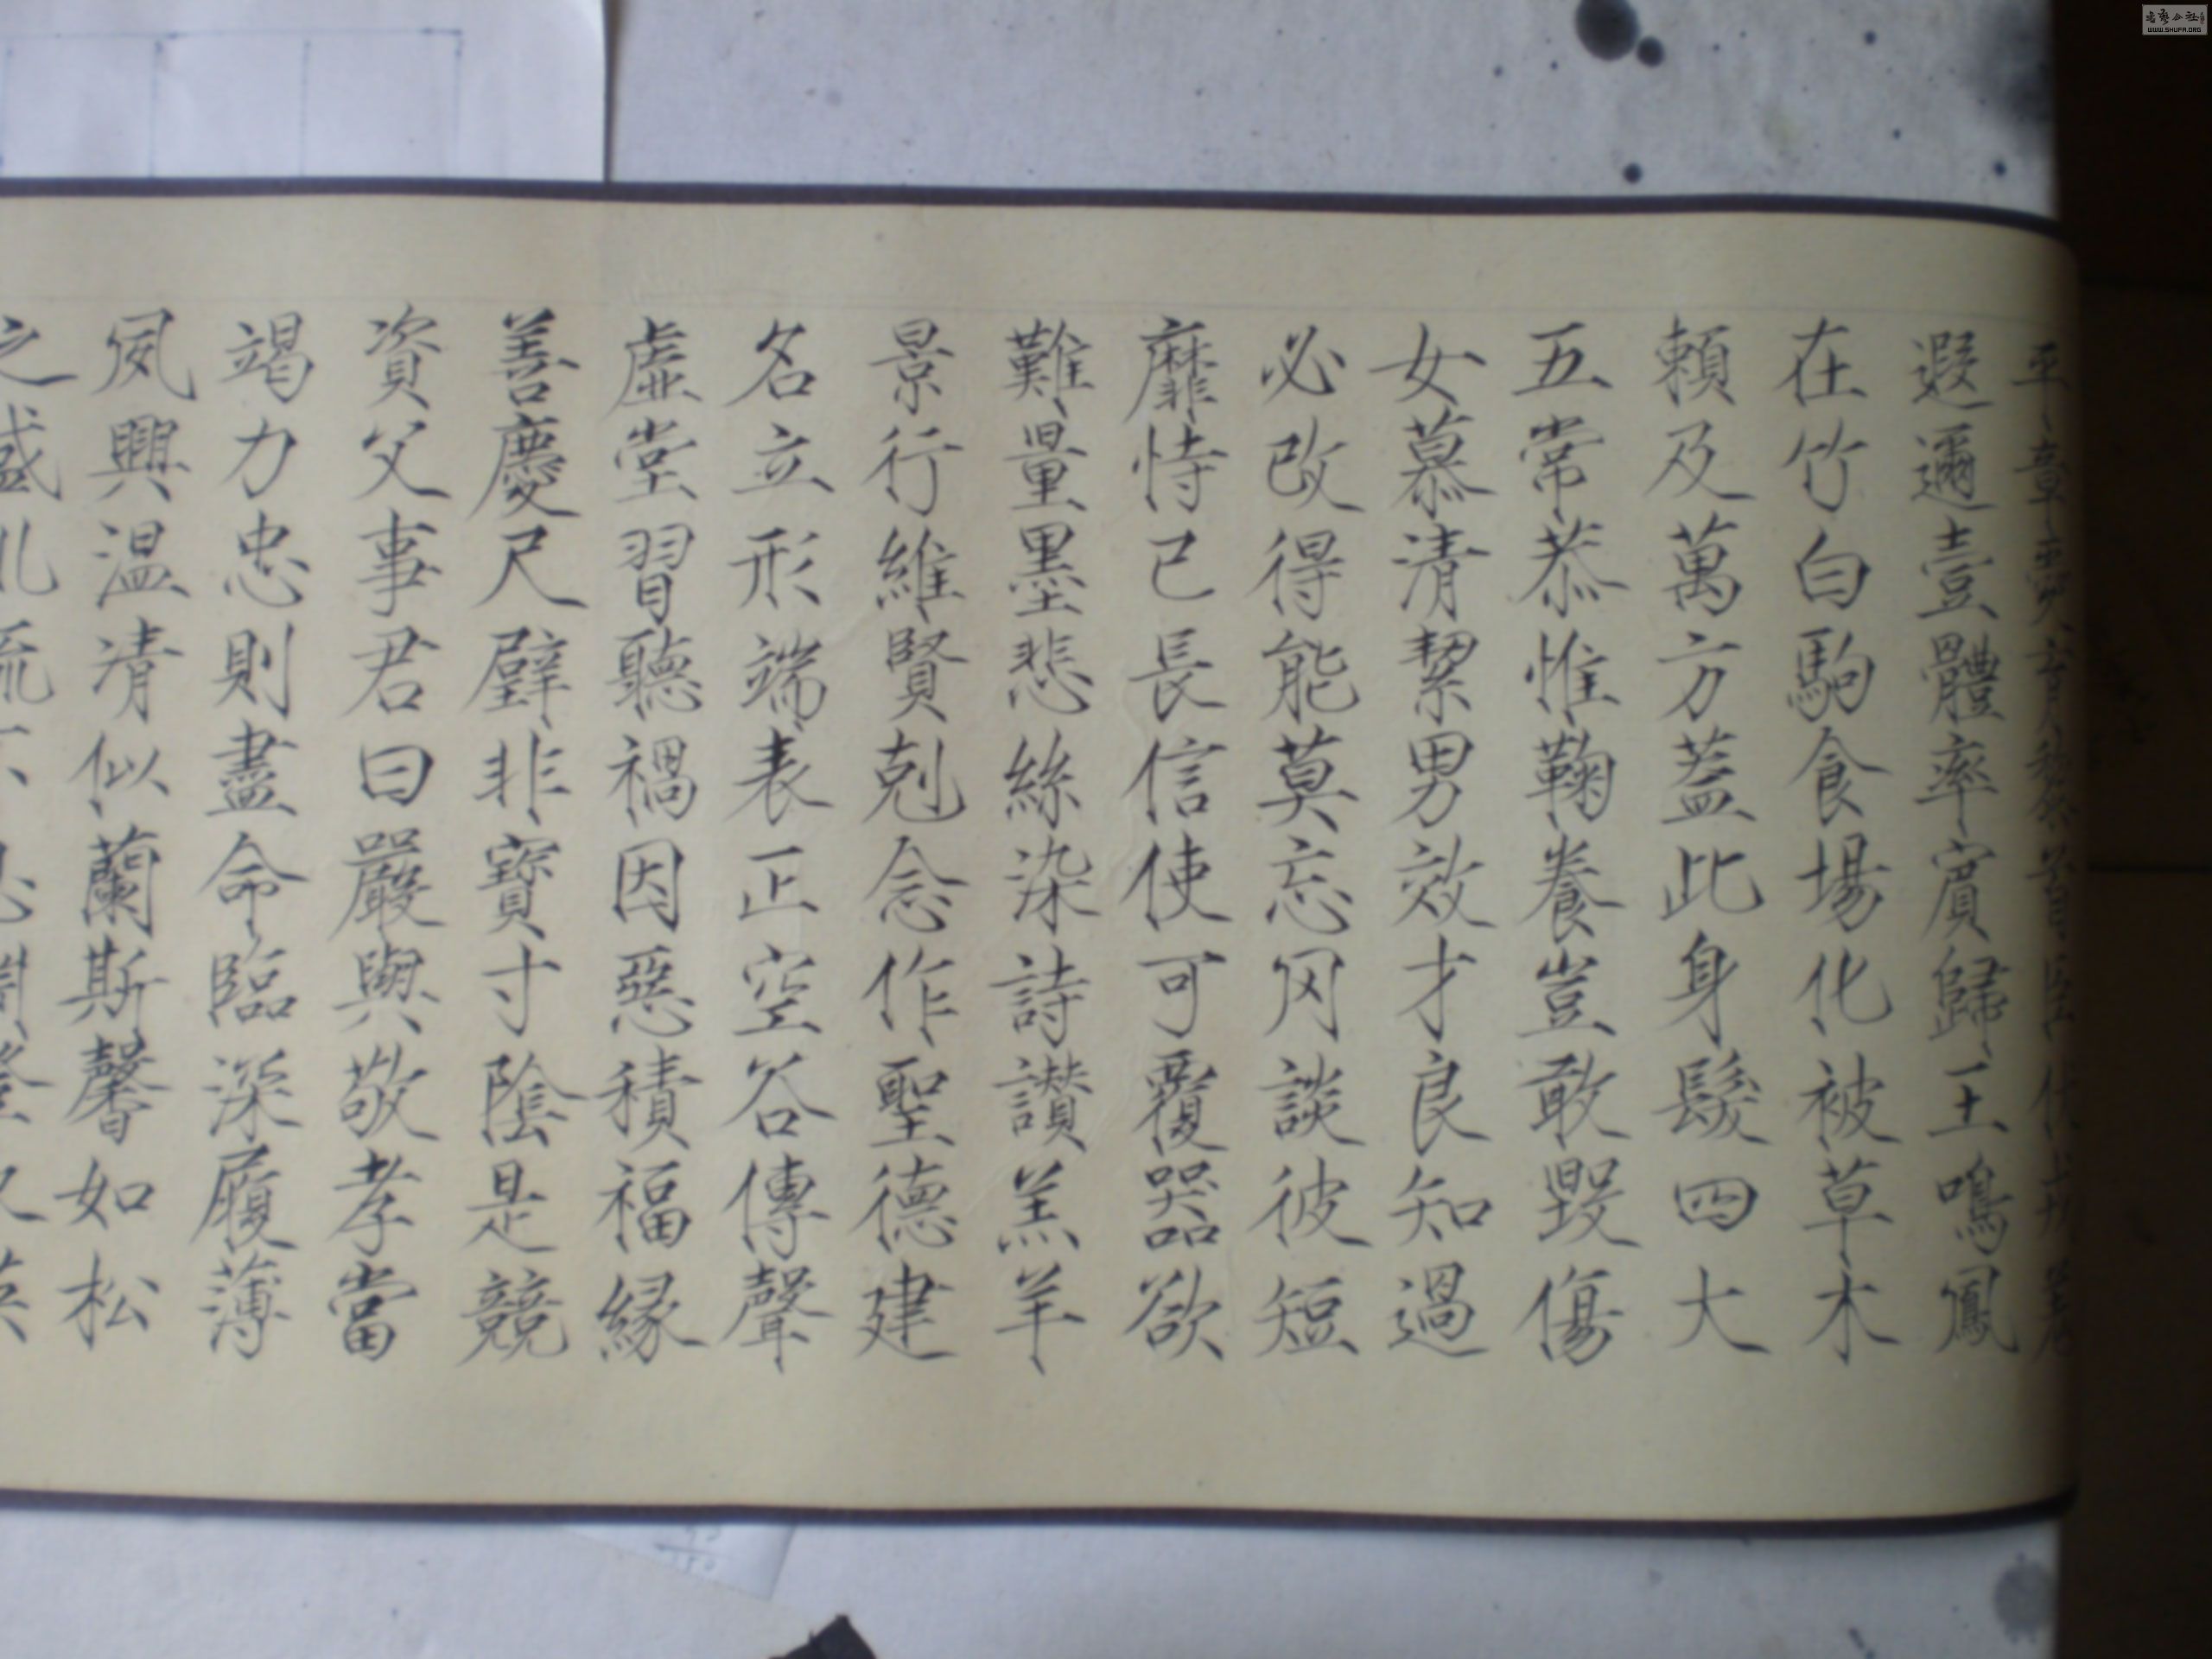 平章愛育黎首臣伏戎羌
遐邇壹體率賓歸王鳴鳳
在竹白駒食場化被草木
賴及萬方蓋此身髮四大
五常恭惟鞠養豈敢毀傷
女慕清絜男效才良知過
必改得能莫忘罔談彼短
靡恃己長信使可覆器欲
難量墨悲絲染詩讃羔羊
景行維賢剋念作聖德建
名立形端表正空谷傳聲
虛堂習聽禍因惡積福緣
善慶尺璧非寶寸陰是競
資父事君曰嚴與敬孝當
竭力忠則盡命臨深履薄
夙興温清似蘭斯馨如松
之盛川流不息淵澄取
WWW.SHUFA.ORG